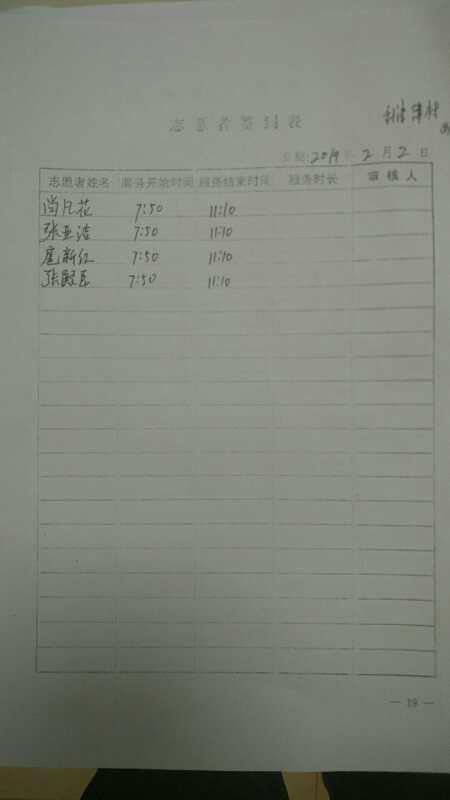 志愿者签到表
日期:2019年2月2日
志愿者姓名 服务开始时间 服务结束时间 服务时长 审核人
尚凡花 7:50 11:10
张亚洁 7:50 11:10
扈新红 7:50 11:10
张殿臣 7:50 11:10
— 19 —